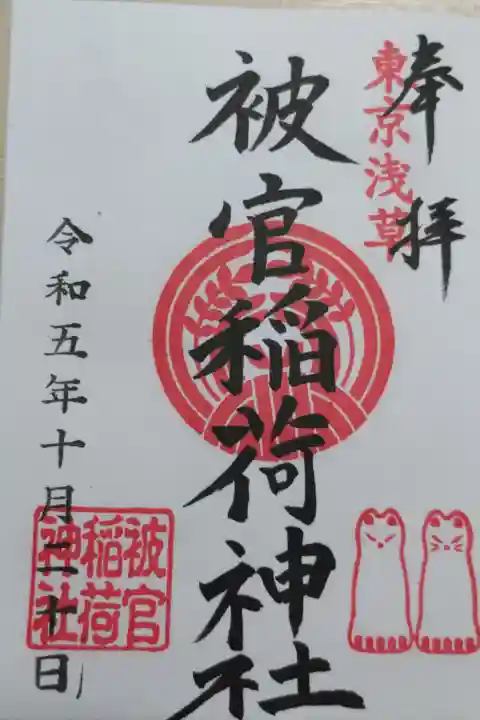 奉拝
東京浅草
被官稲荷神社
令和五年十月二十日
被官
稲荷
神社